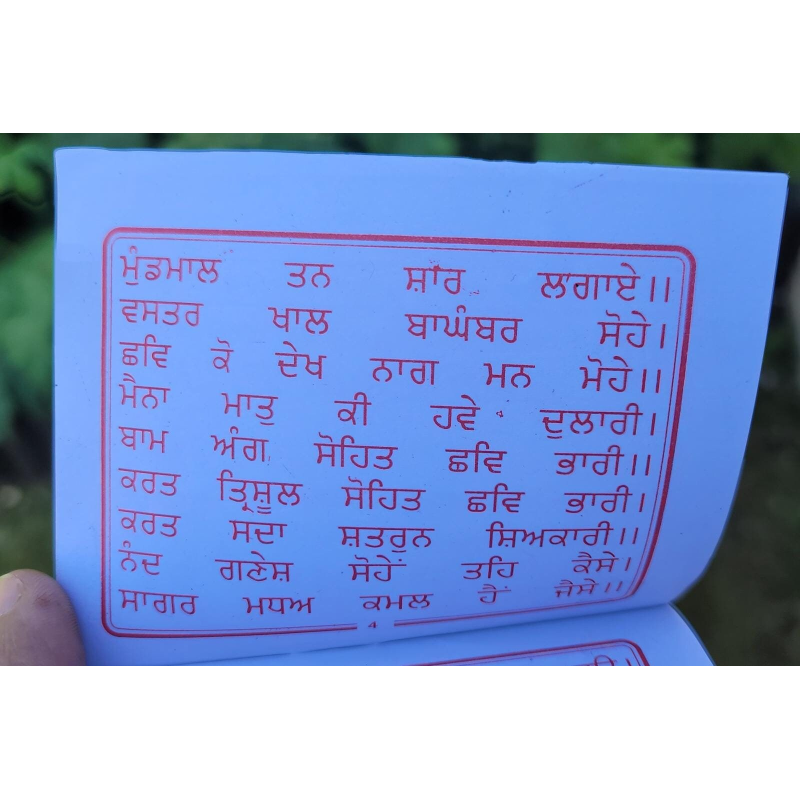 ਮੁੰਡਮਾਲ ਤਨ ਸ਼ਾਂਰ ਲਗਾਏ।।
ਵਸਤਰ ਖਾਲ ਬਾਘੰਬਰ ਸੋਹੇ।
ਛਵਿ ਕੋ ਦੇਖ ਨਾਗ ਮਨ ਮੋਹੇ।।
ਮੈਨਾ ਮਾਤੁ ਕੀ ਹਵੇ ਦੁਲਾਰੀ।
ਬਾਮ ਅੰਗ ਸੋਹਿਤ ਛਵਿ ਭਾਰੀ।।
ਕਰਤ ਤ੍ਰਿਸ਼ੂਲ ਸੋਹਿਤ ਛਵਿ ਭਾਰੀ।
ਕਰਤ ਸਦਾ ਸ਼ਤਰੁਨ ਸ਼ਿਅਕਾਰੀ।।
ਨੰਦ ਗਣੇਸ਼ ਸੋਹੇਂ ਤਹਿ ਕੈਸੇ।
ਸਾਗਰ ਮਧਅ ਕਮਲ ਹੈਂ ਜੈਸੇ।।
4